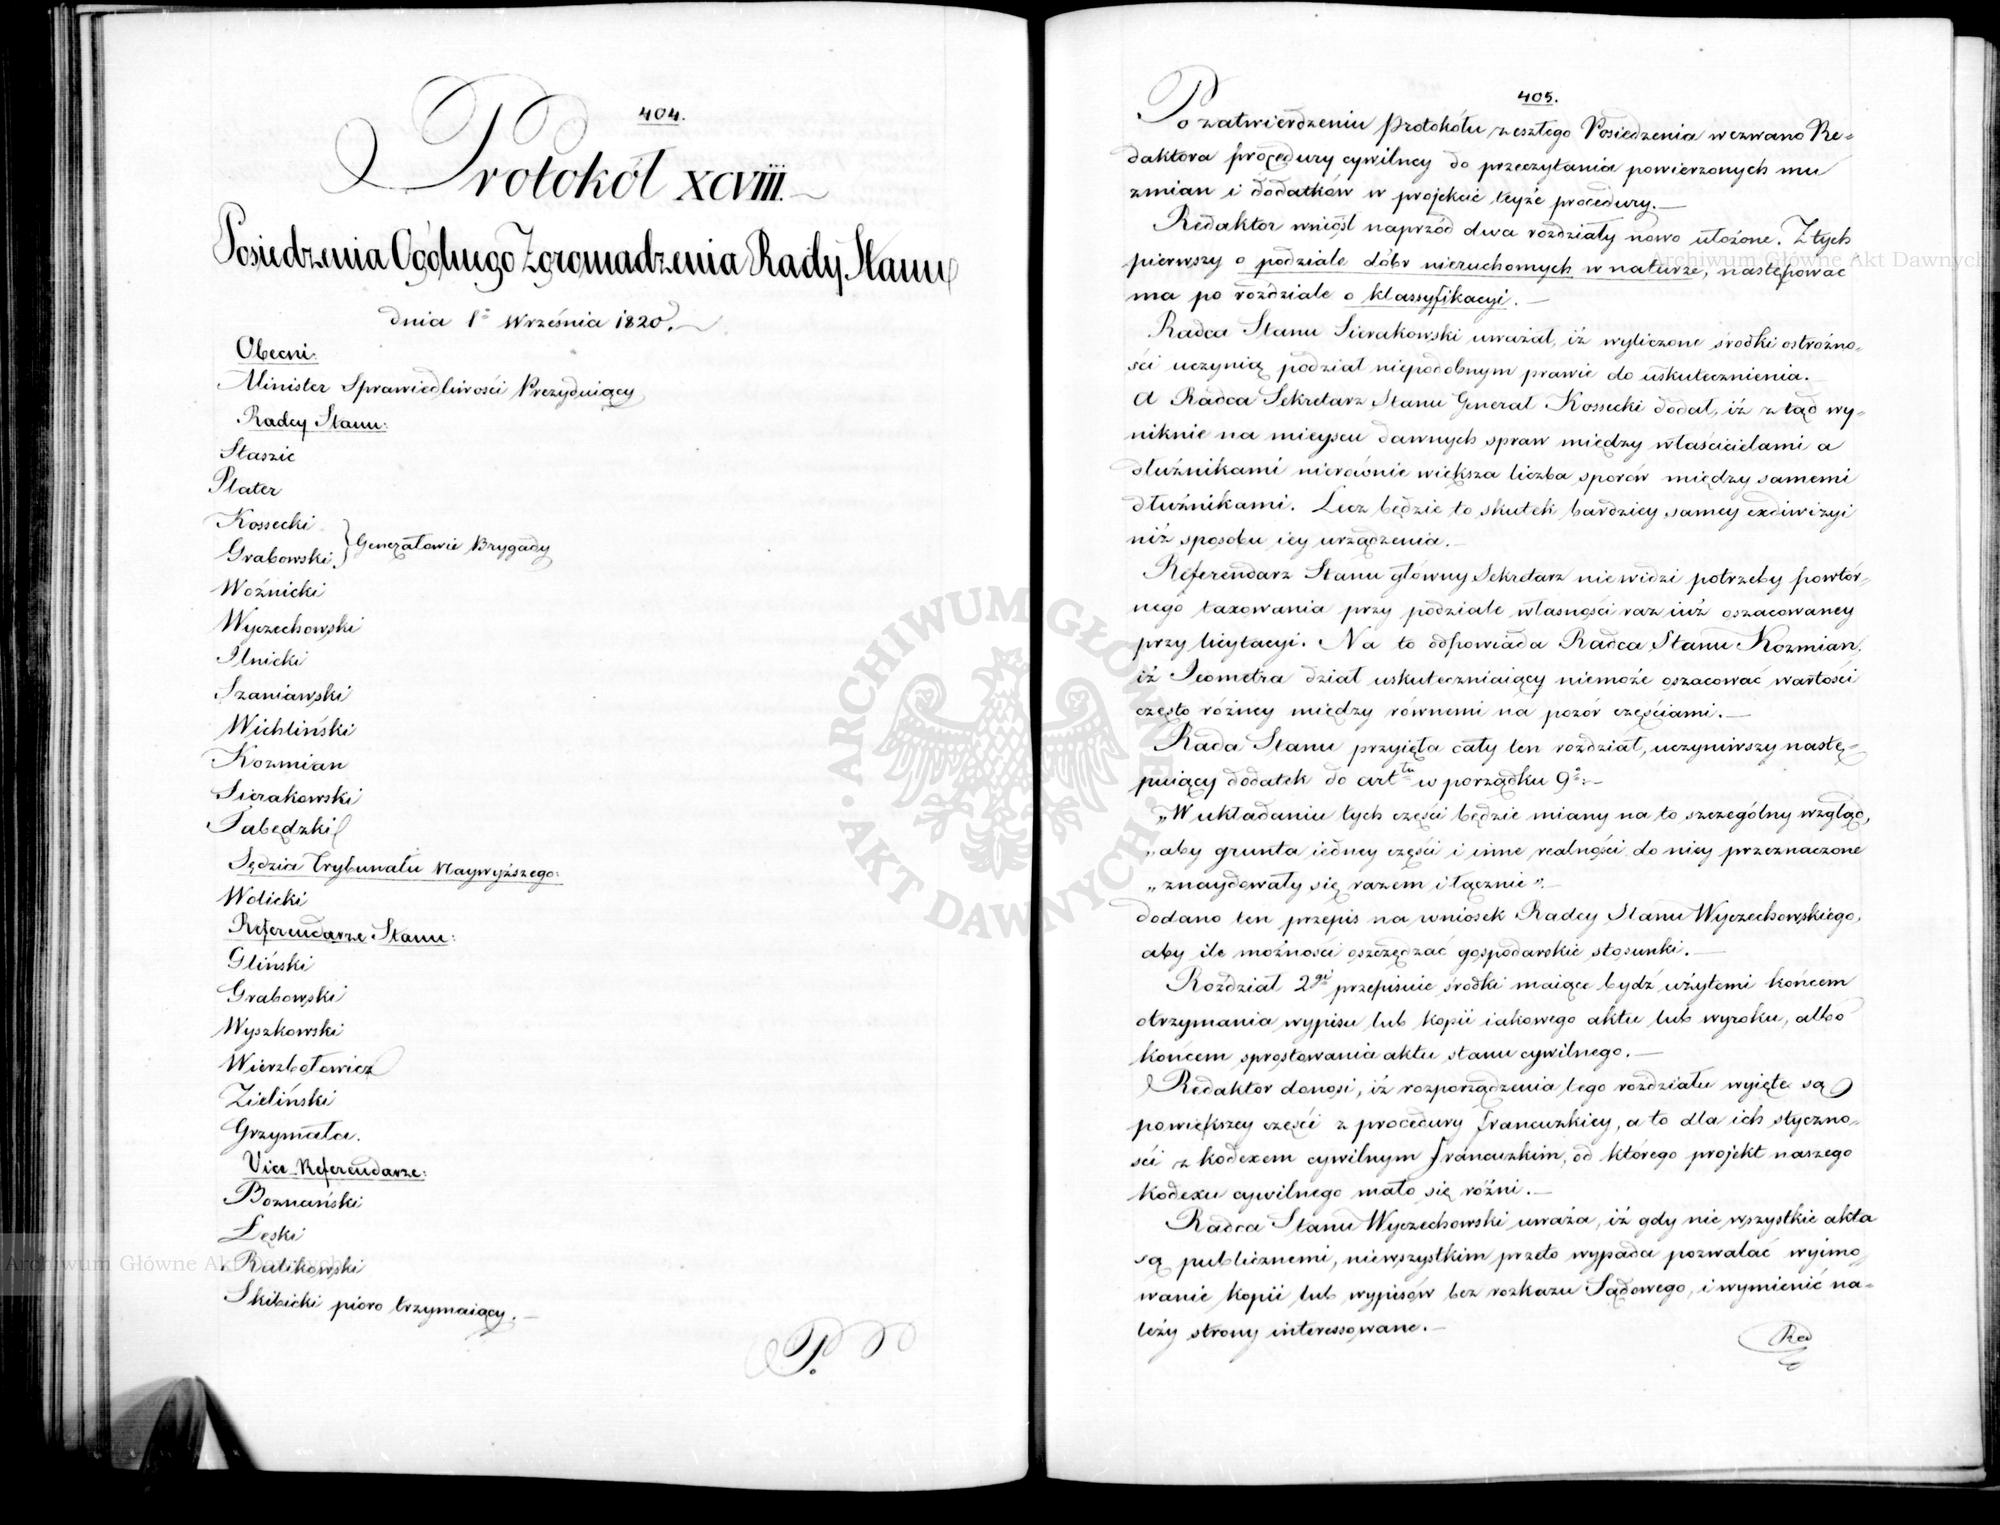 404.
Protokół XCVIII.
Posiedzenia Ogólnego Zgromadzenia Rady Stanu
dnia 1º Września 1820.
Obecni:
Minister Sprawiedliwości Prezyduiący
Radcy Stanu:
Staszic
Plater
Kossecki
Grabowski } Generałowie Brygady
Woźnicki
Wyczechowski
Ilnicki
Szaniawski
Wichliński
Kozmian
Sierakowski
Łabędzki
Sędzia Trybunału Naywyższego:
Wolicki
Referendarze Stanu:
Gliński
Grabowski
Wyszkowski
Wierzbołowicz
Zieliński
Grzymała.
Vice-Referendarze:
Boznański
Łęski
Rutikowski
Skibicki pioro trzymaiący.
Po
405.
Po zatwierdzeniu protokółu zeszłego Posiedzenia wezwano Re-
daktora procedury cywilney do przeczytania powierzonych mu
zmian i dodatków w projekcie teyże procedury.
Redaktor wniósł naprzód dwa rozdziały nowo ułożone. Z tych
pierwszy o podziale dóbr nieruchomych w naturze, następować
ma po rozdziale o klassyfikacyi.
Radca Stanu Sierakowski uważał, iż wyliczone środki ostróżno-
ści uczynią podział niepodobnym prawie do uskutecznienia.
A Radca Sekretarz Stanu Generał Kossecki dodał, iż ztąd wy-
niknie na mieyscu dawnych spraw między właścicielami a
dłużnikami nierównie większa liczba sporów między samemi
dłużnikami. Lecz będzie to skutek bardziey samey exdiwizyi
niż sposobu iey urządzenia.
Referendarz Stanu główny Sekretarz nie widzi potrzeby powtór-
nego taxowania przy podziale własności raz iuż oszacowaney
przy licytacyi. Na to odpowiada Radca Stanu Kozmian,
iż Jeometra dział uskuteczniaiący niemoże oszacować wartości
często różney między równemi na pozór częściami.
Rada Stanu przyięła cały ten rozdział, uczyniwszy nastę-
puiący dodatek do arttu w porządku 9º:
„W układaniu tych części będzie miany na to szczególny wzgląd,
„aby grunta iedney części i inne realności do niey przeznaczone
„znaydowały się razem i łącznie".
dodano ten przepis na wniosek Radcy Stanu Wyczechowskiego,
aby ile możności oszczędzać gospodarskie stosunki.
Rozdział 2gi przepisuie środki maiące bydź użytemi końcem
otrzymania wypisu lub kopii iakowego aktu lub wyroku, albo
końcem sprostowania aktu stanu cywilnego.
Redaktor donosi, iż rozporządzenia tego rozdziału wyięte są
powiększey części z procedury francuzkiey, a to dla ich styczno-
ści z kodexem cywilnym francuzkim, od którego projekt naszego
kodexu cywilnego mało się różni.
Radca Stanu Wyczechowski uważa, iż gdy nie wszystkie akta
są publicznemi, niewszystkim przeto wypada pozwalać wyimo-
wanie kopii lub wypisów bez rozkazu Sądowego, i wymienić na-
leży strony interessowane.
Red
Archiwum Główne Akt Dawnych
Archiwum Główne Akt Dawnych
ARCHIWUM GŁÓWNE
AKT DAWNYCH